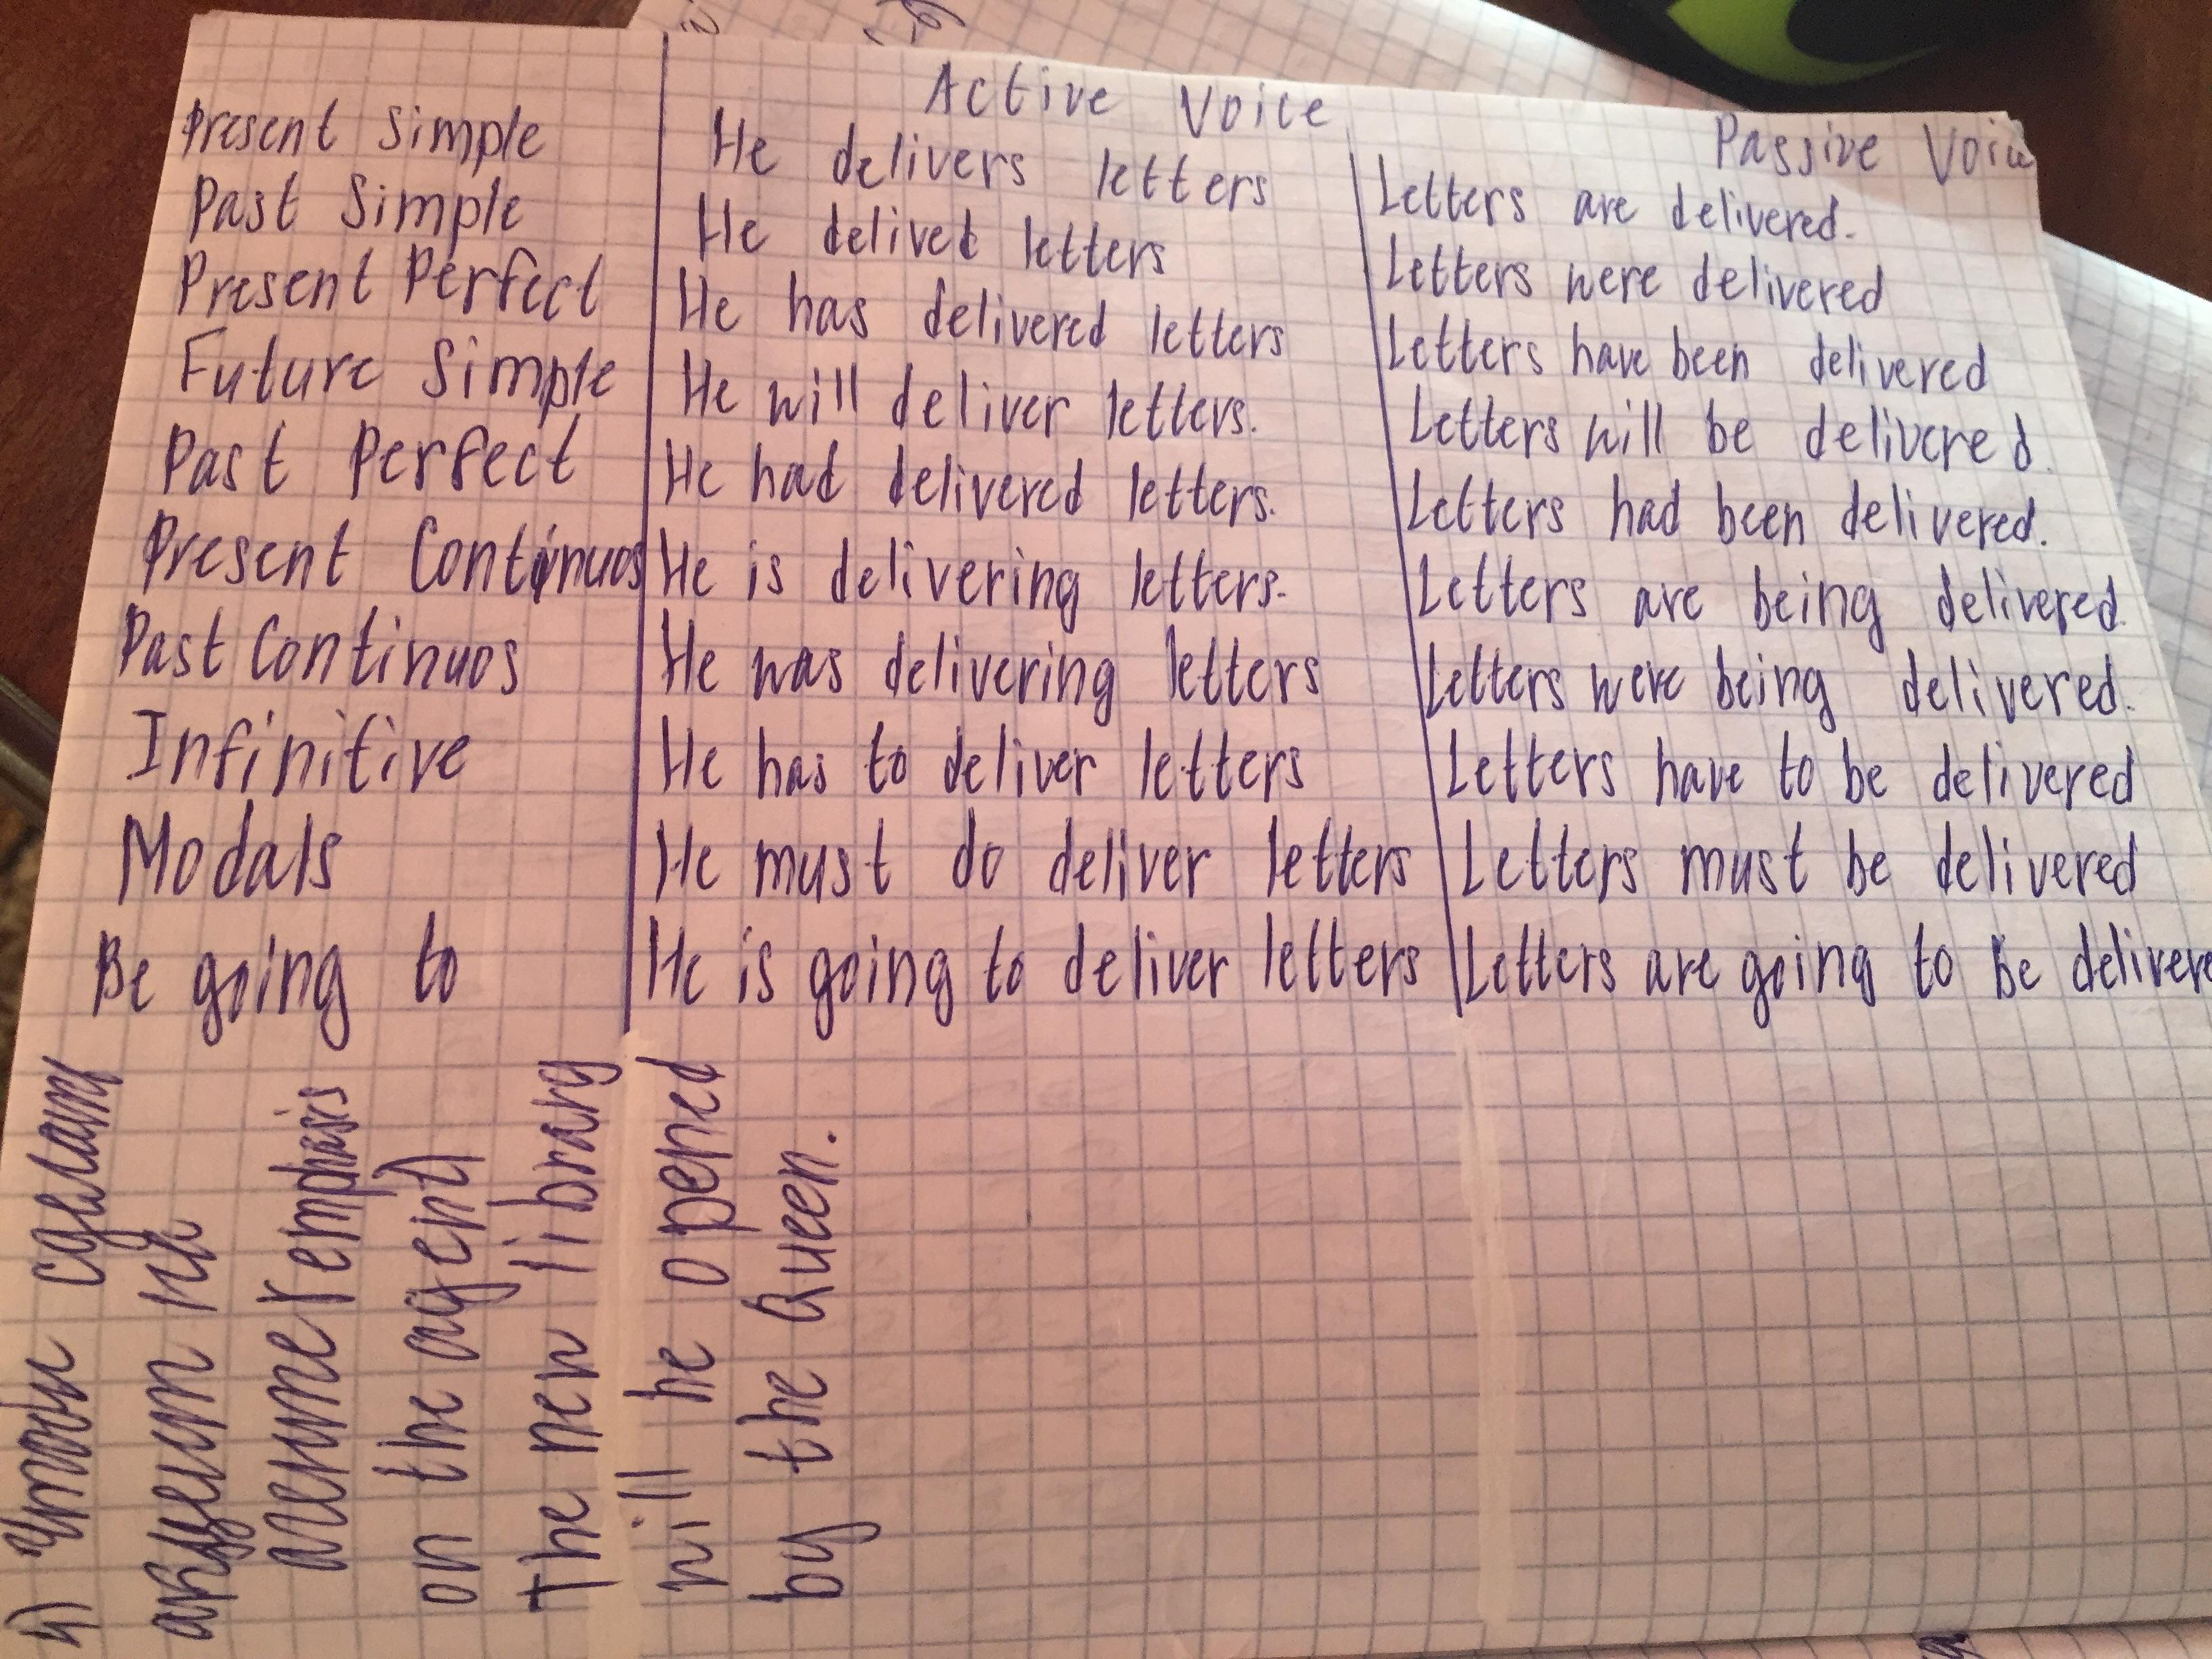 Active Voice Passive Voice
Present Simple He delivers letters Letters are delivered.
Past Simple He delivet letters Letters were delivered
Present Perfect He has delivered letters Letters have been delivered
Future Simple He will deliver letters. Letters will be delivered.
Past Perfect He had delivered letters. Letters had been delivered.
Present Continuos He is delivering letters. Letters are being delivered.
Past Continuos He was delivering letters Letters were being delivered.
Infinitive He has to deliver letters Letters have to be delivered
Modals He must do deliver letters Letters must be delivered
Be going to He is going to deliver letters Letters are going to be delivere
4) Чтобы сделать
акцент на
агенте (emphasis
on the agent)
The new library
will be opened
by the Queen.